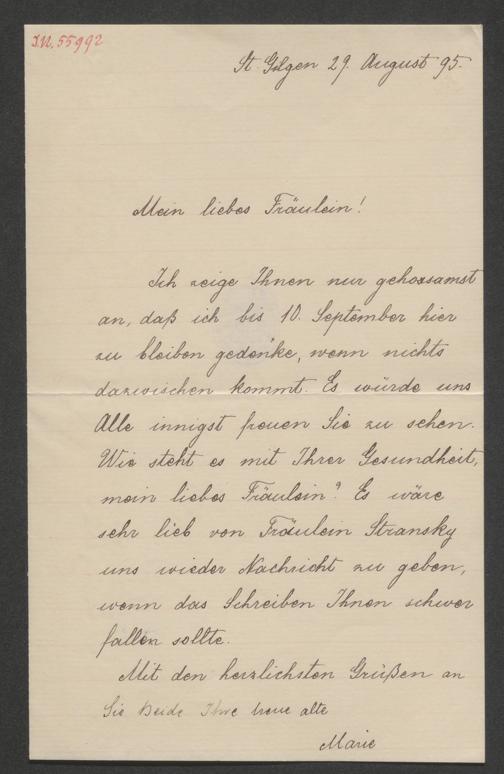 I.N. 55992
St. Gilgen 29. August 95.
Mein liebes Fräulein!
Ich zeige Ihnen nur gehorsamst
an, daß ich bis 10. September hier
zu bleiben gedenke, wenn nichts
dazwischen kommt. Es würde uns
Alle innigst freuen Sie zu sehen.
Wie steht es mit Ihrer Gesundheit,
mein liebes Fräulein? Es wäre
sehr lieb von Fräulein Stransky
uns wieder Nachricht zu geben,
wenn das Schreiben Ihnen schwer
fallen sollte.
Mit den herzlichsten Grüßen an
Sie Beide Ihre treue alte
Marie